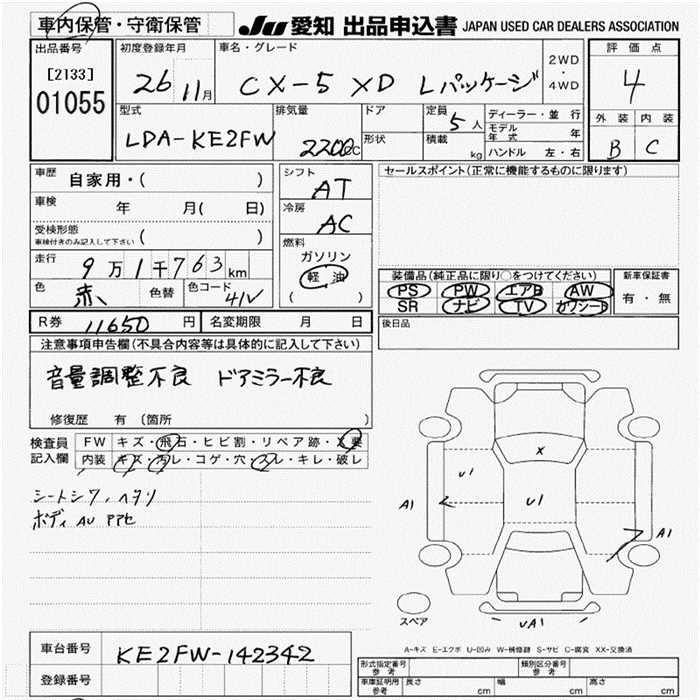 車内保管・守衛保管 JU 愛知 出品申込書 JAPAN USED CAR DEALERS ASSOCIATION
出品番号 初度登録年月 車名・グレード 評価点
[2133] 26 11月 CX-5 XD Lパッケージ 2WD・4WD 4
01055
型式 排気量 ドア 定員 5人 ディーラー・並行 外装 内装
LDA-KE2FW 2200cc 形状 積載 kg モデル年式 年 B C
ハンドル 左・右
車歴 自家用・( ) シフト AT セールスポイント(正常に機能するものに限ります)
車検 年 月( 日) 冷房 AC
受検形態 車検付きのみ記入して下さい ( )
燃料 ガソリン 軽油 ( )
走行 9万1千763km
装備品(純正品に限り○をつけてください) 新車保証書
色 赤 色替 色コード 41V PS PW エアB AW 有・無
SR ナビ TV カワシート
R券 11650円 名変期限 月 日 後日品
注意事項申告欄(不具合内容等は具体的に記入して下さい)
音量調整不良 ドアミラー不良
修復歴 有 (箇所 )
検査員記入欄 FW キズ・飛石・ヒビ割・リペア跡・X要
内装 キズ・汚レ・コゲ・穴・スレ・キレ・破レ
シートシワ、ヘタリ
ボディ AU PPセ
X
U1
U1
A1
A1
UA1
スペア
A-キズ E-エクボ U-凹み W-補修跡 S-サビ C-腐食 XX-交換済
車台番号 KE2FW-142342
登録番号
形式指定番号 参考 類別区分番号 参考
車庫証明用 参考 長さ cm 幅 cm 高さ cm